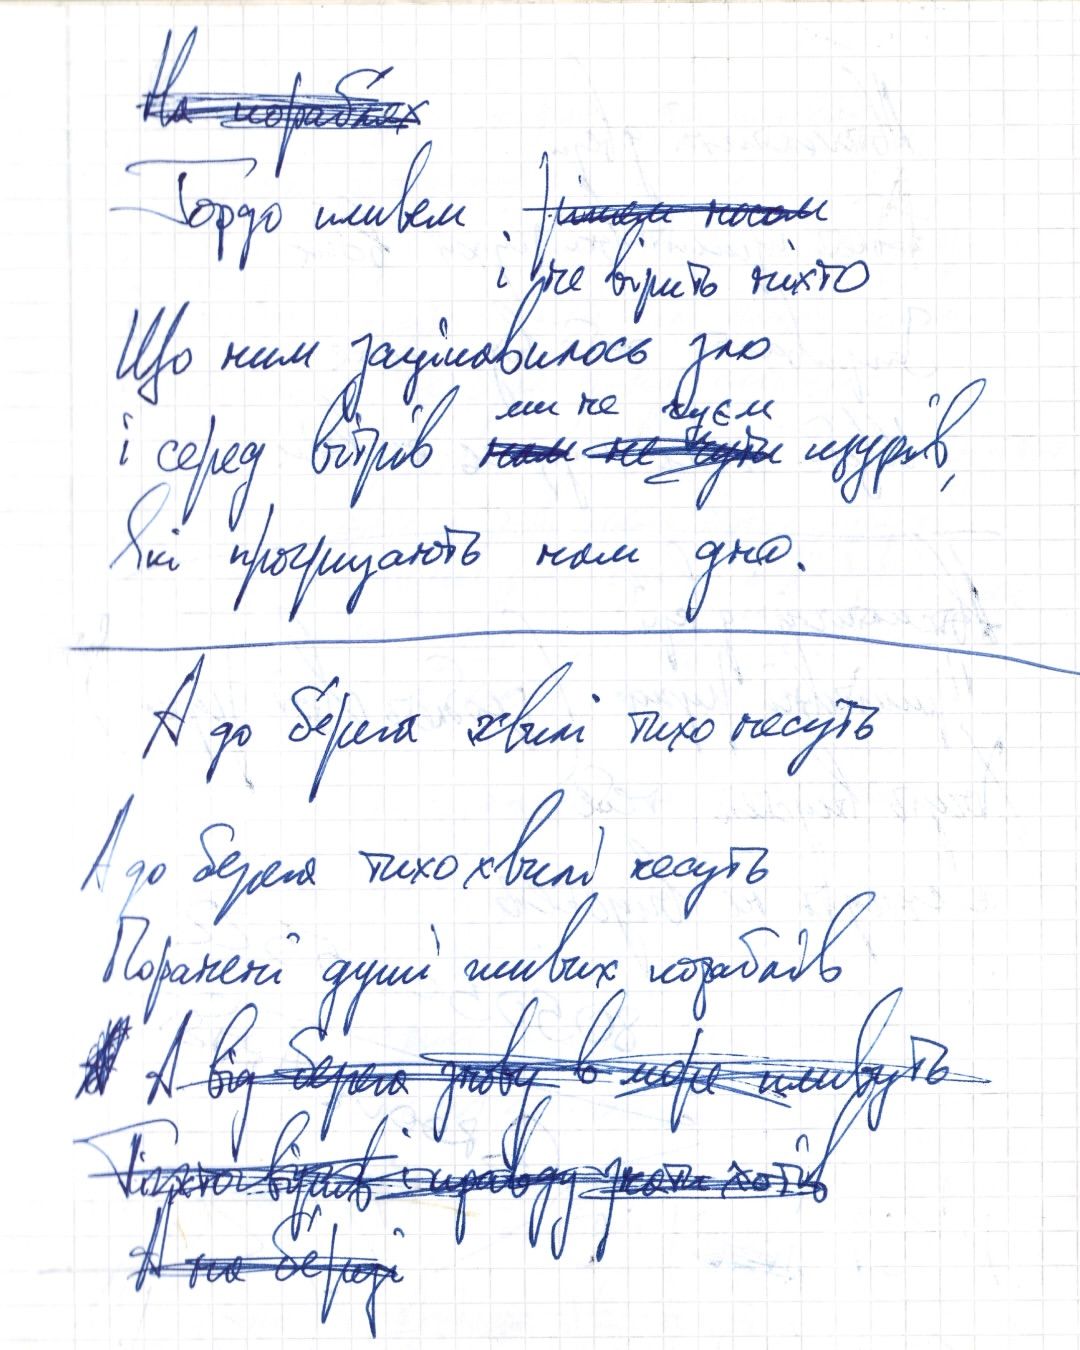 На кораблях
Гордо пливем,
і не вірить ніхто
Що ним зацікавилось зло
ми не чуєм
і серед вітрів нам не чути щурів,
Які прогризають нам дно.
А до берега хвилі тихо несуть
А до берега тихо хвилі несуть
Поранені душі живих кораблів
А від берега знову в море пливуть
Ті, хто вірив і правду знати хотів
А на березі